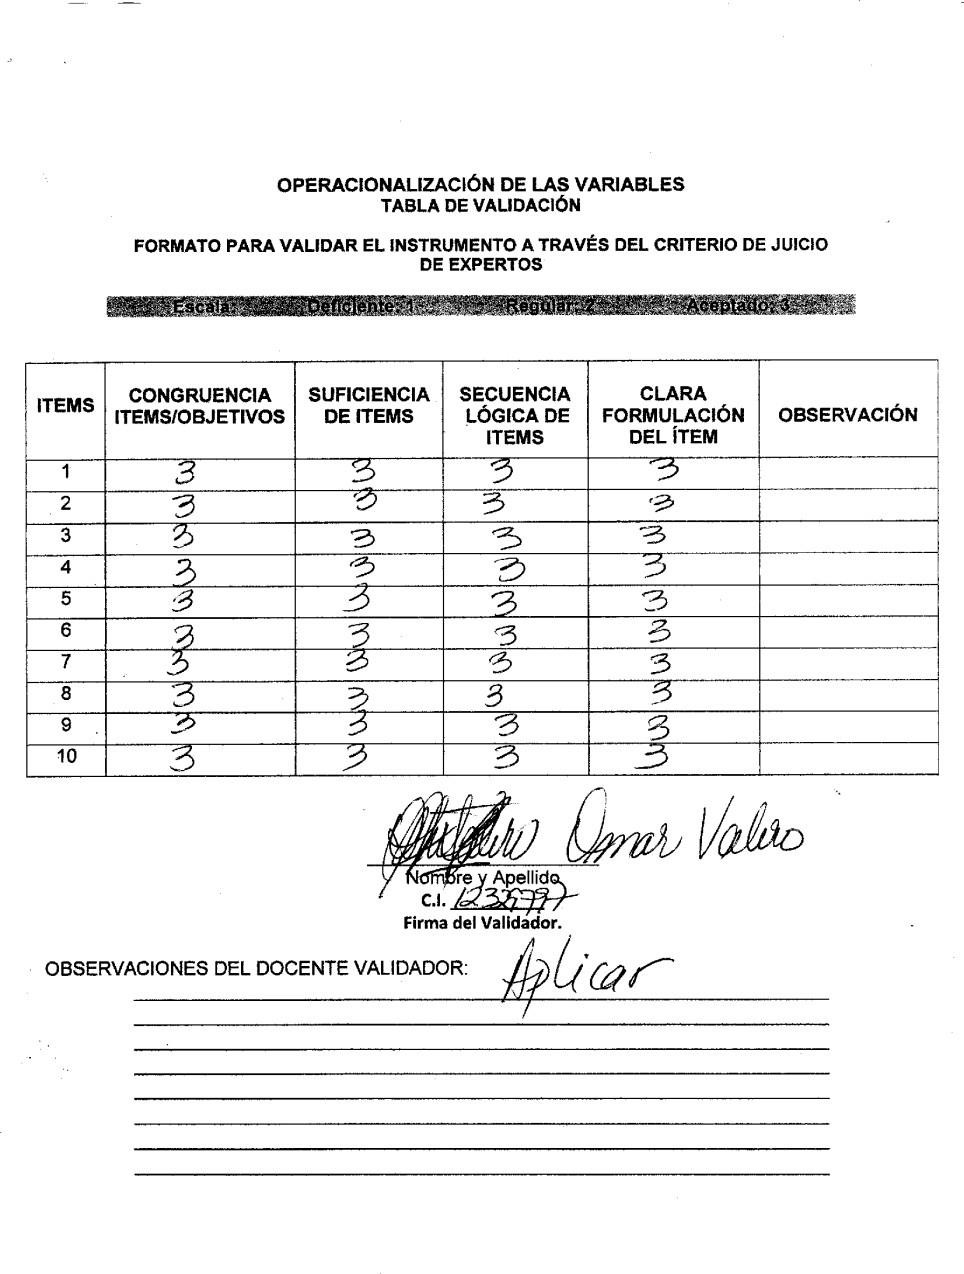 OPERACIONALIZACIÓN DE LAS VARIABLES
TABLA DE VALIDACIÓN
FORMATO PARA VALIDAR EL INSTRUMENTO A TRAVÉS DEL CRITERIO DE JUICIO
DE EXPERTOS
Escala: Deficiente: 1 Regular: 2 Aceptado: 3
ITEMS CONGRUENCIA ITEMS/OBJETIVOS SUFICIENCIA DE ITEMS SECUENCIA LÓGICA DE ITEMS CLARA FORMULACIÓN DEL ÍTEM OBSERVACIÓN
1 3 3 3 3
2 3 3 3 3
3 3 3 3 3
4 3 3 3 3
5 3 3 3 3
6 3 3 3 3
7 3 3 3 3
8 3 3 3 3
9 3 3 3 3
10 3 3 3 3
Omar Valero
Nombre y Apellido
C.I.
Firma del Validador.
OBSERVACIONES DEL DOCENTE VALIDADOR: Aplicar